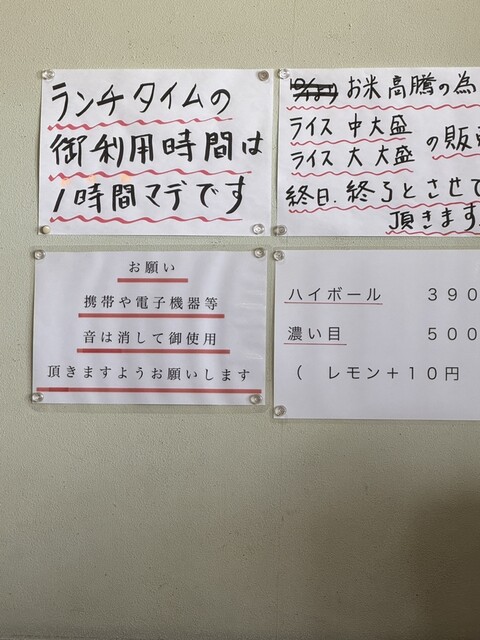 ランチタイムの
御利用時間は
1時間マデです
お米高騰の為
ライス 中大盛
ライス 大大盛
の販
終日.終了とさせて
頂きます.
お願い
携帯や電子機器等
音は消して御使用
頂きますようお願いします
ハイボール 390
濃い目 500
( レモン+10円